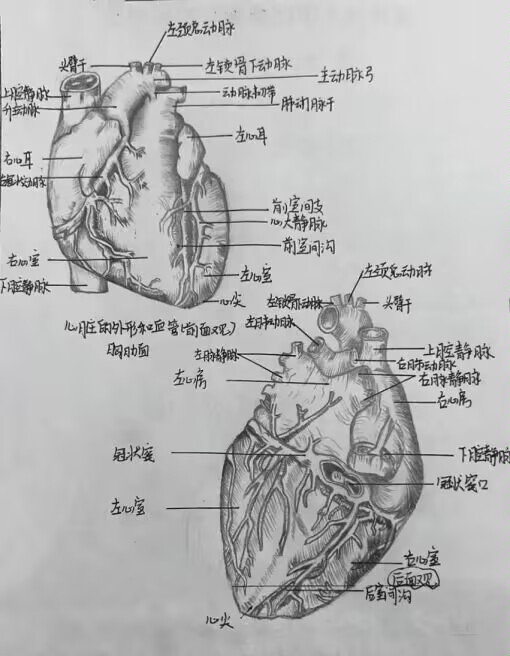 左颈总动脉
头臂干
左锁骨下动脉
主动脉弓
上腔静脉
动脉韧带
升主动脉
肺动脉干
左心耳
右心耳
右冠状动脉
前室间支
心大静脉
前室间沟
右心室
左心室
下腔静脉
心尖
心脏的外形和血管(前面观)
胸肋面
左颈总动脉
左锁骨下动脉
头臂干
左肺动脉
上腔静脉
左肺静脉
右肺动脉
右肺静脉
左心房
右心房
冠状窦
下腔静脉
冠状窦口
左心室
右心室
后面观
后室间沟
心尖